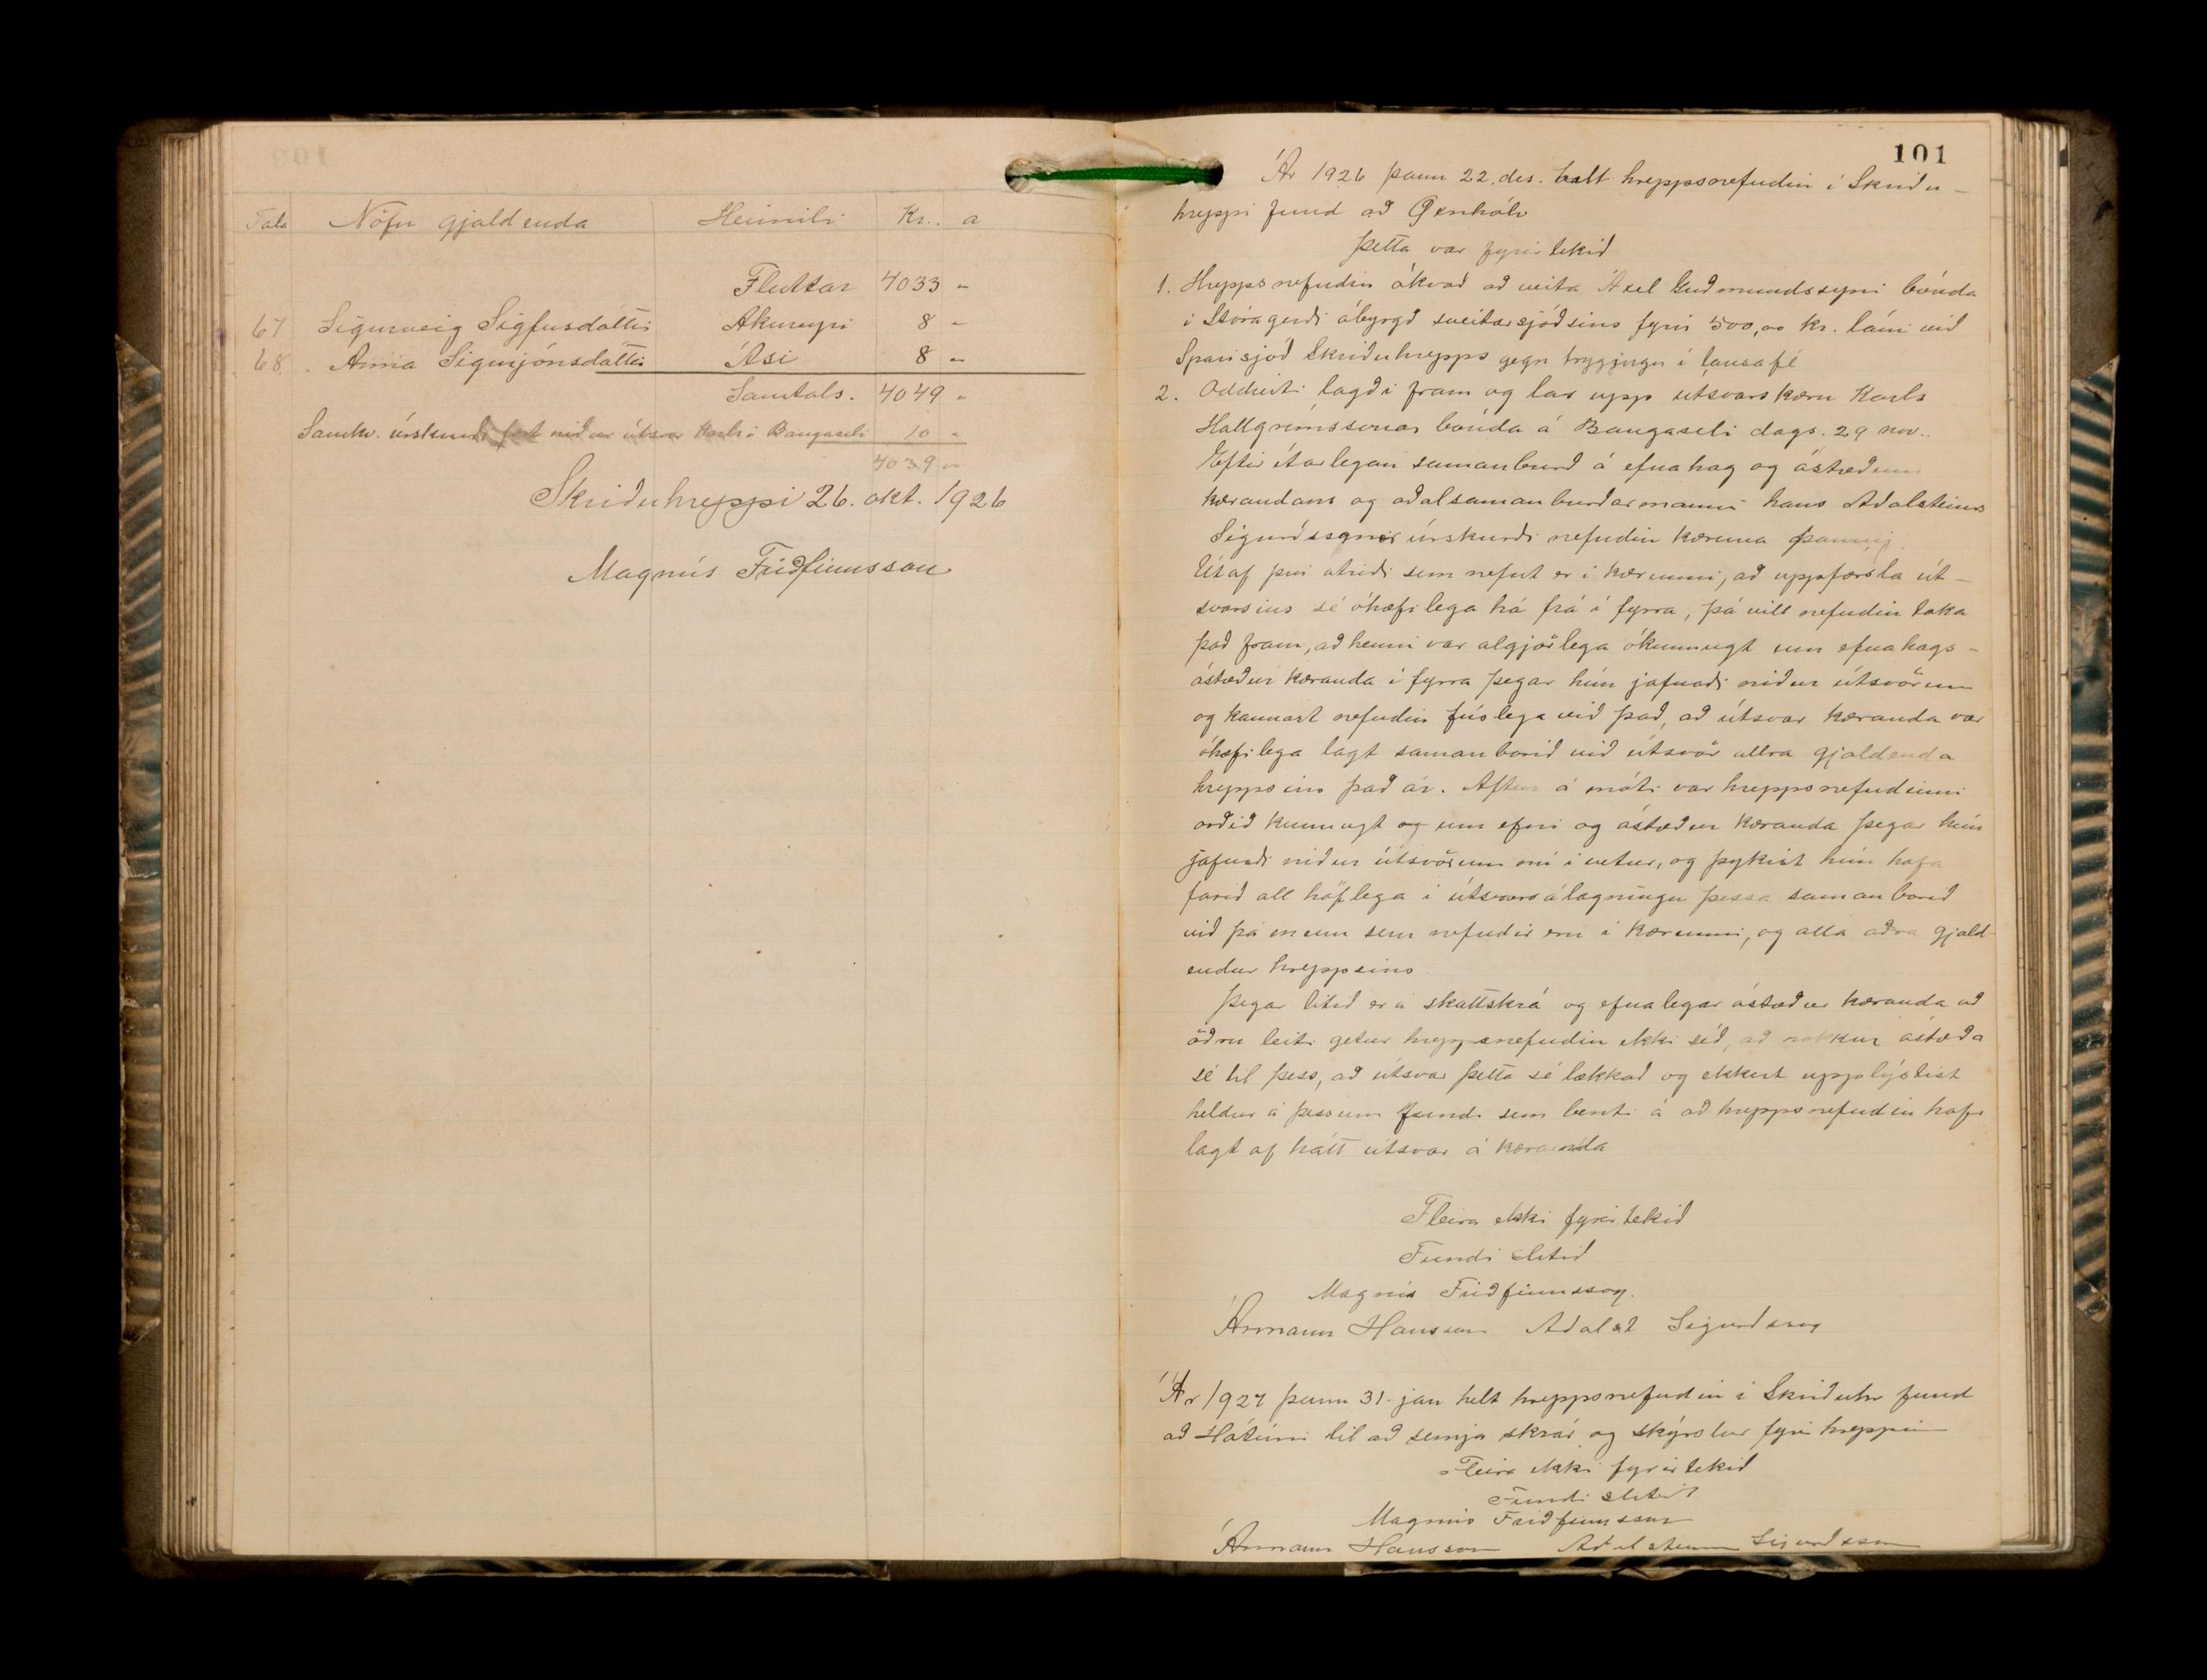 Tala Nöfn gjaldenda Heimili Kr. a
Fluttar 4033 "
67 Sigurveig Sigfusdóttir Akureyri 8 "
68 Anna Sigurjónsdóttir Ási 8 "
Samtals. 4049 "
Samkv. úrskurði fært niður útsvar Karls í Baugaseli 10 "
4039 "
Skriðuhreppi 26. okt. 1926
Magnús Friðfinnsson
101
Ár 1926 þann 22. des. helt hreppsnefndin í Skriðu-
hreppi fund að
Þetta var fyrirtekið
1. Hreppsnefndin ákvað að veita Axel Guðmundssyni bónda
í Stóragerði ábyrgð sveitarsjóðsins fyrir 500,00 kr. láni við
Sparisjóð Skriðuhrepps gegn tryggingu í lausafé
2. Oddviti lagði fram og las upp útsvarskæru Karls
Hallgrímssonar bónda á Baugaseli dags. 29 nov..
Eftir ítarlegan samanburð á efnahag og ástæðum
kærandans og aðalsamanburðarmanni hans Aðalsteins
Sigurðssonar úrskurði nefndin kæruna þannig
Útaf því atriði sem nefnt er í kærunni, að uppfærsla út-
svarsins sé óhæfilega há frá í fyrra, þá vill nefndin taka
það fram, að henni var algjörlega ókunnugt um efnahags-
ástæður kæranda í fyrra þegar hún jafnaði niður útsvörum
og kannast nefndin fúslega við það, að útsvar kæranda var
óhæfilega lagt samanborið við útsvör allra gjaldenda
hreppsins það ár. Aftur á móti var hreppsnefndinni
orðið kunnugt og um efni og ástæður kæranda þegar hún
jafnaði niður útsvörum nú í vetur, og þykist hún hafa
farið all höflega í útsvarsálagningu þessa samanborið
við þá menn sem nefndir eru í kærunni, og alla aðra gjald-
endur hreppsins
Þegar litið er á skattskrá og efnalegar ástæður kæranda að
öðru leiti getur hreppsnefndin ekki séð, að nokkur ástæða
sé til þess, að útsvar þetta sé lækkað og ekkert upplýstist
heldur á þessum fundi sem benti á að hreppsnefndin hafi
lagt of hátt útsvar á kæranda
Fleira ekki fyrirtekið
Fundi slitið
Magnús Friðfinnsson.
Ármann Hansson Aðalst Sigurðsson
Ár 1927 þann 31. jan helt hreppsnefndin í Skriðuhr fund
að Hátúni til að semja skrár og skýrslur fyrir hreppinn
Fleira ekki fyrirtekið
Fundi slitið
Magnús Friðfinnsson
Ármann Hansson Aðalsteinn Sigurðsson